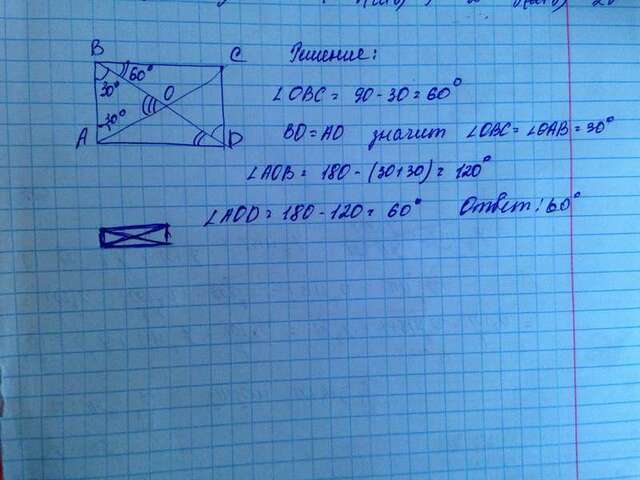 B
C
Решение:
60°
30°
O
∠OBC = 90 - 30 = 60°
30°
A
D
BO = AO значит ∠OBC = ∠OAB = 30°
∠AOB = 180 - (30+30) = 120°
∠AOD = 180 - 120 = 60° Ответ: 60°